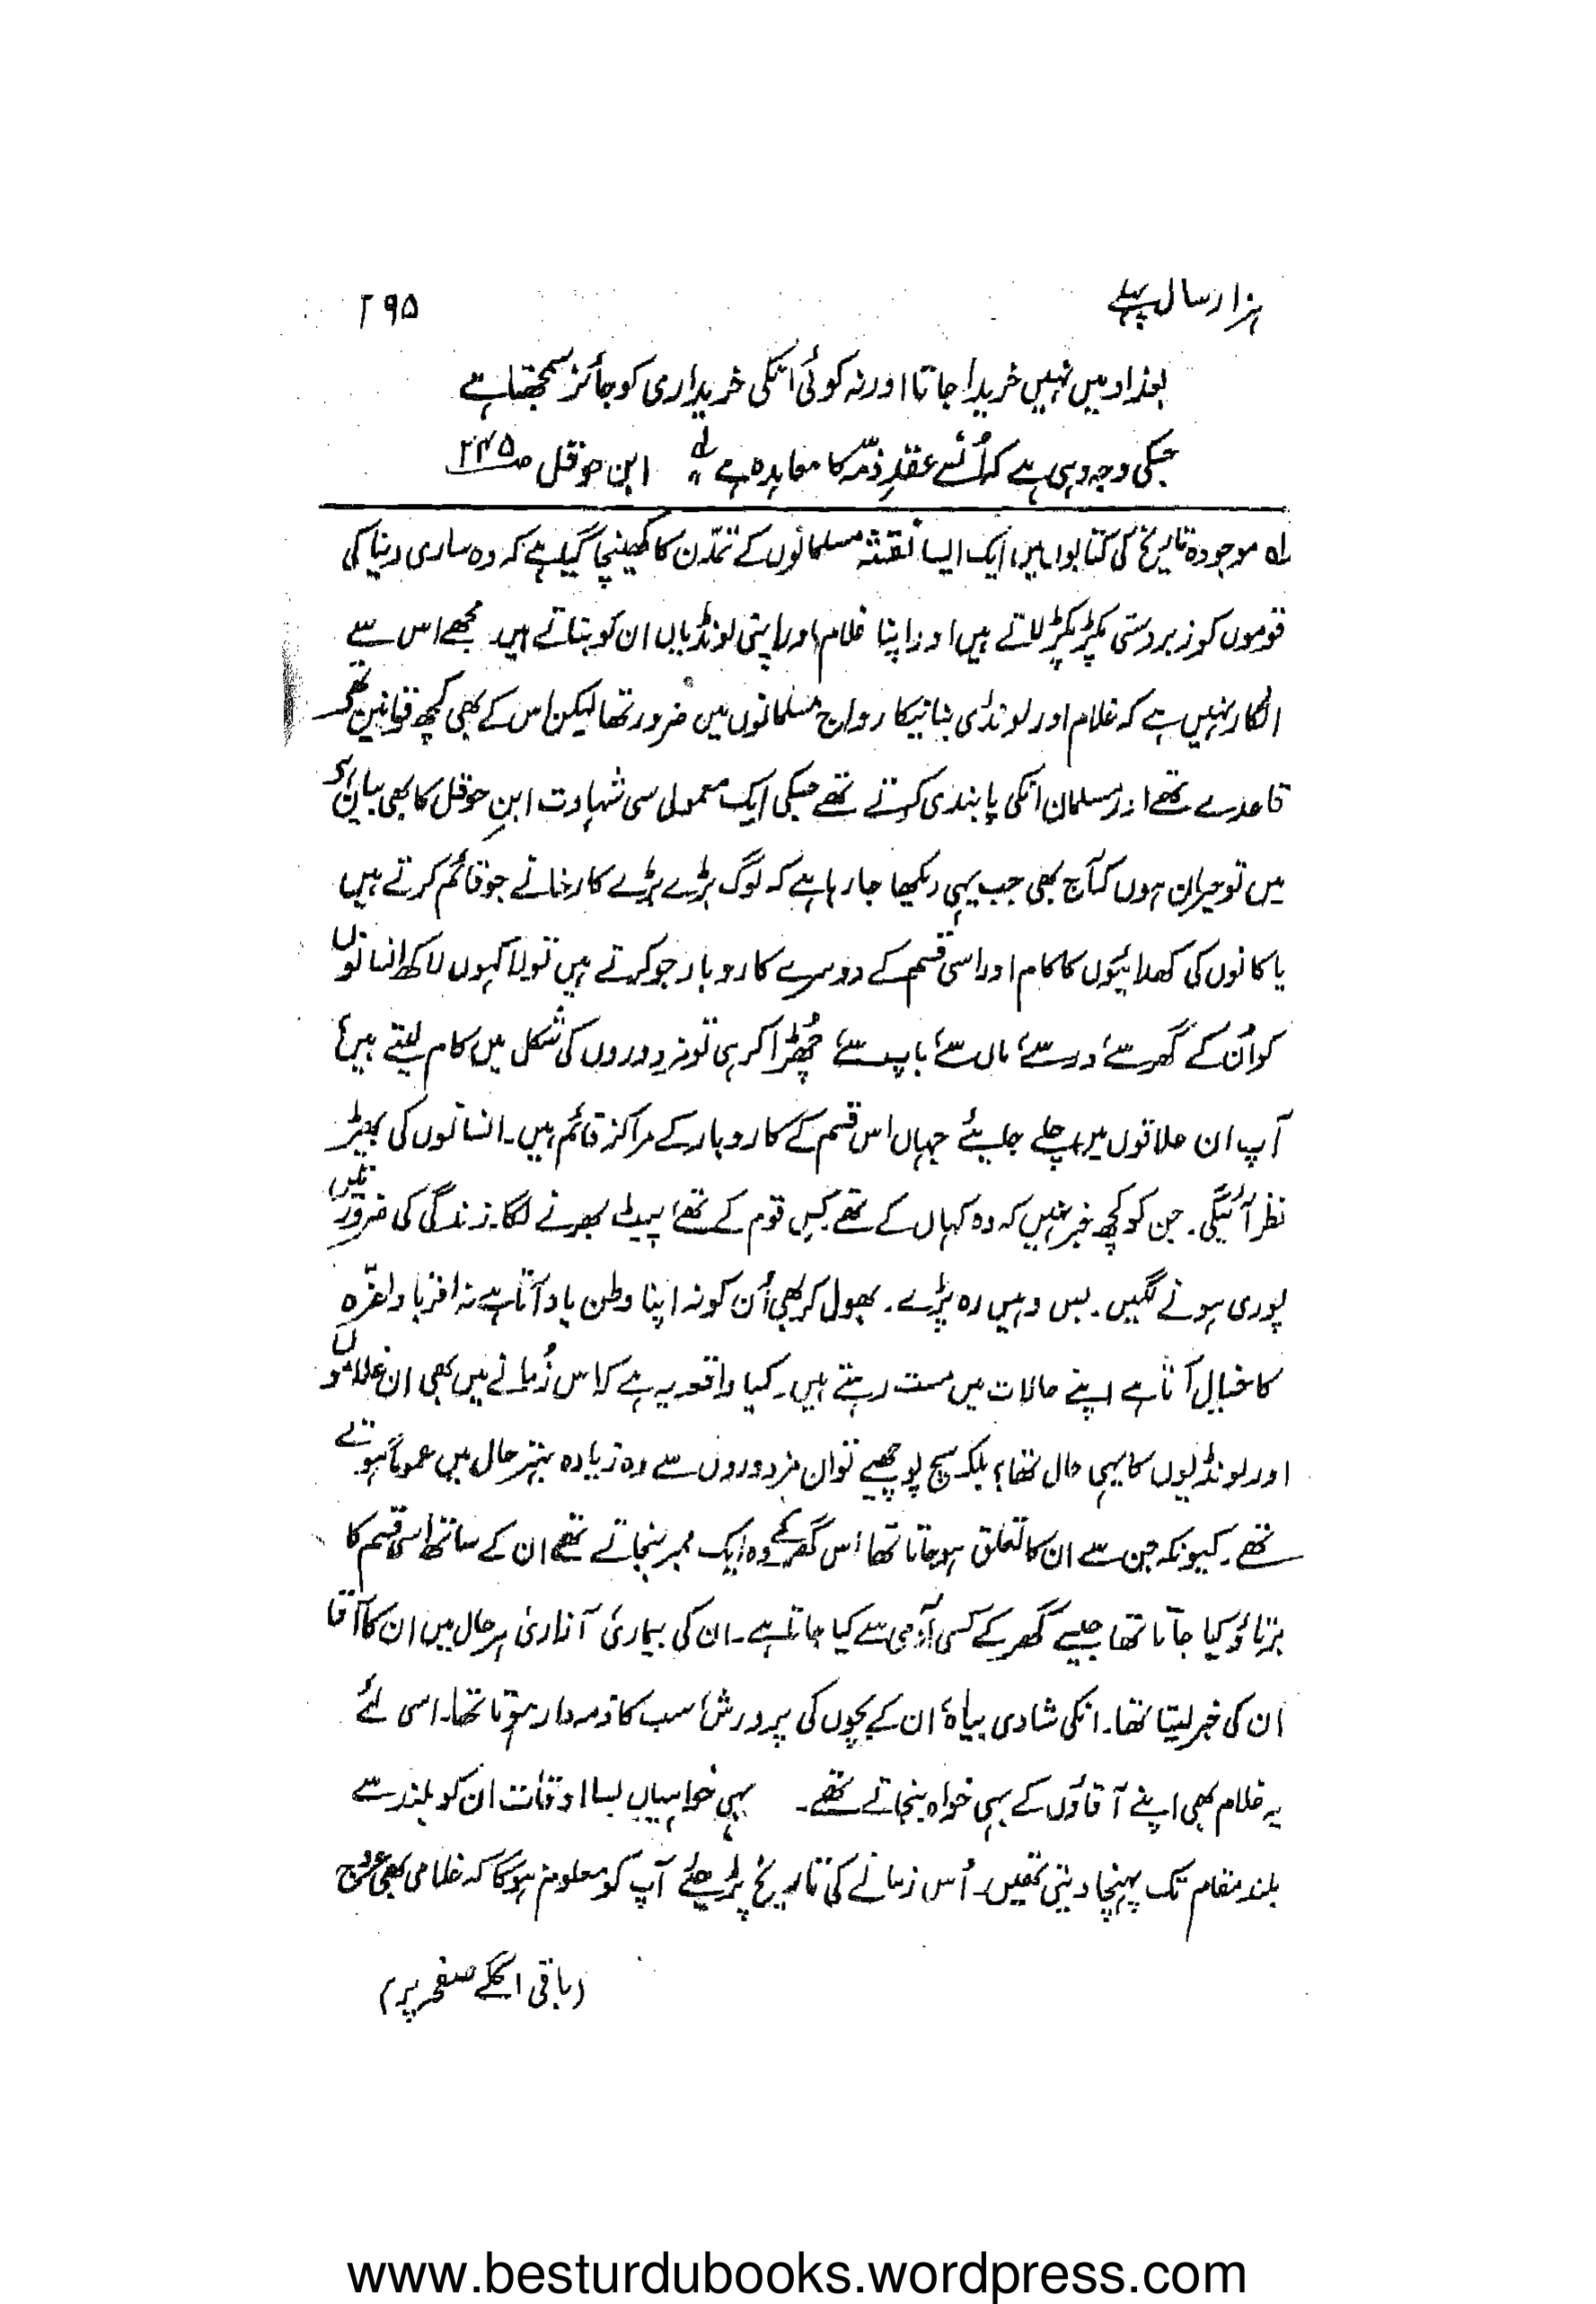 ہزار سال پہلے
۲۹۵
بغداد میں نہیں خریدا جاتا اور نہ کوئی انکی خریداری کو جائز سمجھتا ہے
جسکی وجہ وہی ہے کہ اُنسے عقدِ ذمّہ کا معاہدہ ہے لہ" ابن حوقل صـ۲۴۵
لہ موجودہ تاریخ کی کتابوں میں ایک ایسا نقشہ مسلمانوں کے تمدّن کا کھینچا گیا ہے کہ وہ ساری دنیا کی
قوموں کو زبردستی پکڑ پکڑ لاتے ہیں اور اپنا غلام اور اپنی لونڈیاں ان کو بناتے ہیں۔ مجھے اس سے
انکار نہیں ہے کہ غلام اور لونڈی بنانیکا رواج مسلمانوں میں ضرور تھا لیکن اس کے بھی کچھ قوانین تھے
قاعدے تھے اور مسلمان انکی پابندی کرتے تھے جسکی ایک معمولی سی شہادت ابن حوقل کا بھی بیان ہے
میں تو حیران ہوں کہ آج بھی جب یہی دیکھا جا رہا ہے کہ لوگ بڑے بڑے کارخانے جو قائم کرتے ہیں
یا کانوں کی کھدائیوں کا کام اور اسی قسم کے دوسرے کاروبار جو کرتے ہیں تو لاکہوں لاکھ انسانوں
کو اُن کے گھر سے، در سے، ماں سے، باپ سے، چُھڑا کر ہی تو مزدوروں کی شکل میں کام لیتے ہیں،
آپ ان علاقوں میں چلے جایئے جہاں اس قسم کے کاروبار کے مراکز قائم ہیں۔ انسانوں کی بھیڑ
نظر آئیگی۔ جن کو کچھ خبر نہیں کہ وہ کہاں کے تھے کس قوم کے تھے، پیٹ بھرنے لگا۔ زندگی کی ضرورتیں
پوری ہونے لگیں۔ بس وہیں رہ پڑے۔ بھول کر بھی اُن کو نہ اپنا وطن یاد آتا ہے نہ اقربا و اعزّہ
کا خیال آتا ہے اپنے حالات میں مست رہتے ہیں۔ کیا واقعہ یہ ہے کہ اس زمانے میں بھی ان غلاموں
اور لونڈیوں کا یہی حال تھا؟ بلکہ سچ پوچھیے تو ان مزدوروں سے وہ زیادہ بہتر حال میں عموماً ہوتے
تھے۔ کیونکہ جن سے ان کا تعلق ہوجاتا تھا اس گھر کے وہ ایک ممبر بنجاتے تھے ان کے ساتھ اسی قسم کا
برتاؤ کیا جاتا تھا جیسے گھر کے کسی آدمی سے کیا جاتا ہے۔ ان کی بیماری، آزاری، ہر حال میں ان کا آقا
ان کی خبر لیتا تھا۔ انکی شادی بیاہ، ان کے بچوں کی پرورش، سب کا ذمہ دار ہوتا تھا۔ اسی لئے
یہ غلام بھی اپنے آقاؤں کے بہی خواہ بنجاتے تھے۔ یہی خواہیاں بسا اوقات ان کو بلند سے
بلند مقام تک پہنچا دیتی تھیں۔ اُس زمانے کی تاریخ پڑھئے آپ کو معلوم ہوگا کہ غلامی بھی عروج
(باقی اگلے صفحہ پر)
www.besturdubooks.wordpress.com